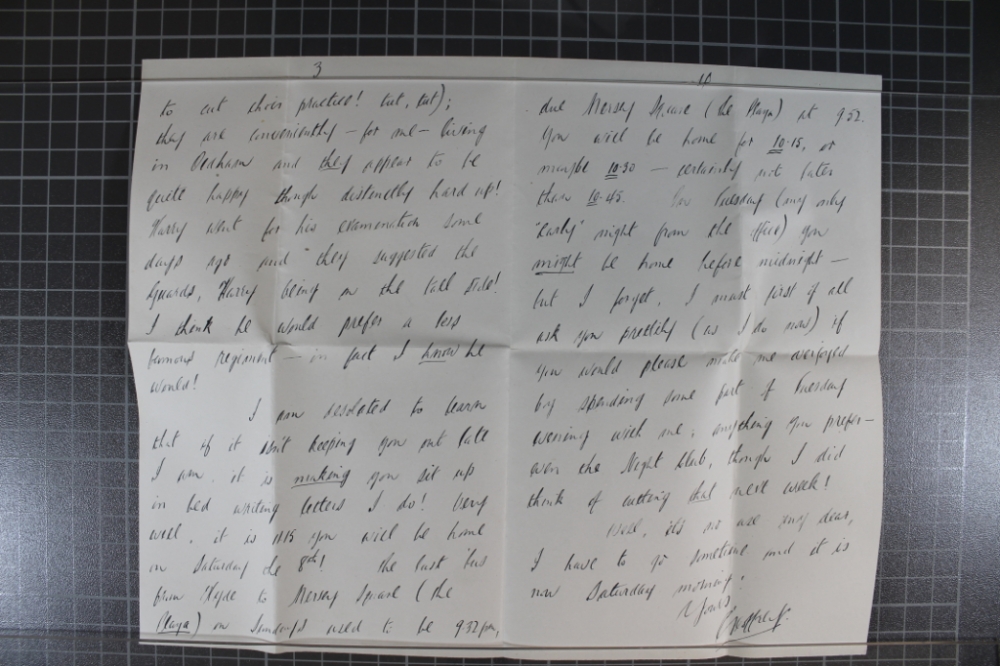 3
to cut choir practice! tut, tut);
they are conveniently – for me – living
in Oldham and they appear to be
quite happy though distinctly hard up!
Harry went for his examination some
days ago and they suggested the
Guards, Harry being on the tall side!
I think he would prefer a less
famous regiment – in fact I know he
would!
I am desolated to learn
that if it isn't keeping you out late
I am, it is making you sit up
in bed writing letters I do! Very
well, it is you will be home
on Saturday the 8th! the last bus
from Hyde to Mersey Square (the
Plaza) on Sundays used to be 9.32 pm,
4
due Mersey Square (the Plaza) at 9.52.
You will be home for 10.15, or
maybe 10.30 – certainly not later
than 10.45. Tuesday (my only
"early" night from the office) you
might be home before midnight –
but I forget, I must first of all
ask you prettily (as I do now) if
you would please make me overjoyed
by spending some part of Tuesday
evening with me; anything you prefer –
even the Night Club, though I did
think of cutting that next week!
Well, it's no use my dear,
I have to go sometime and it is
now Saturday morning.
Yours
Geoffrey.